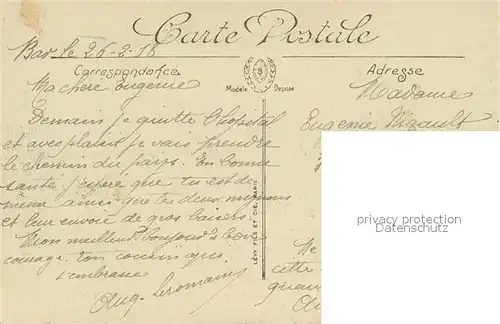 Carte Postale
Bar le 26-2-18
Correspondance
Modèle Déposé
Adresse
Ma chere Eugenie
Madame
Demain je quitte l'hopital
Eugenie
et avec plaisir je vais prendre
le chemin du pays. En bonne
santé j'espere que tu est de
même ainsi que les deux mignons
et leur envoie de gros baisers.
Mon meilleur bonjour
courage ton cousin qui
t'embrasse
Aug.
LÉVY FILS ET CIE, PARIS
cette
privacy protection
for our customers